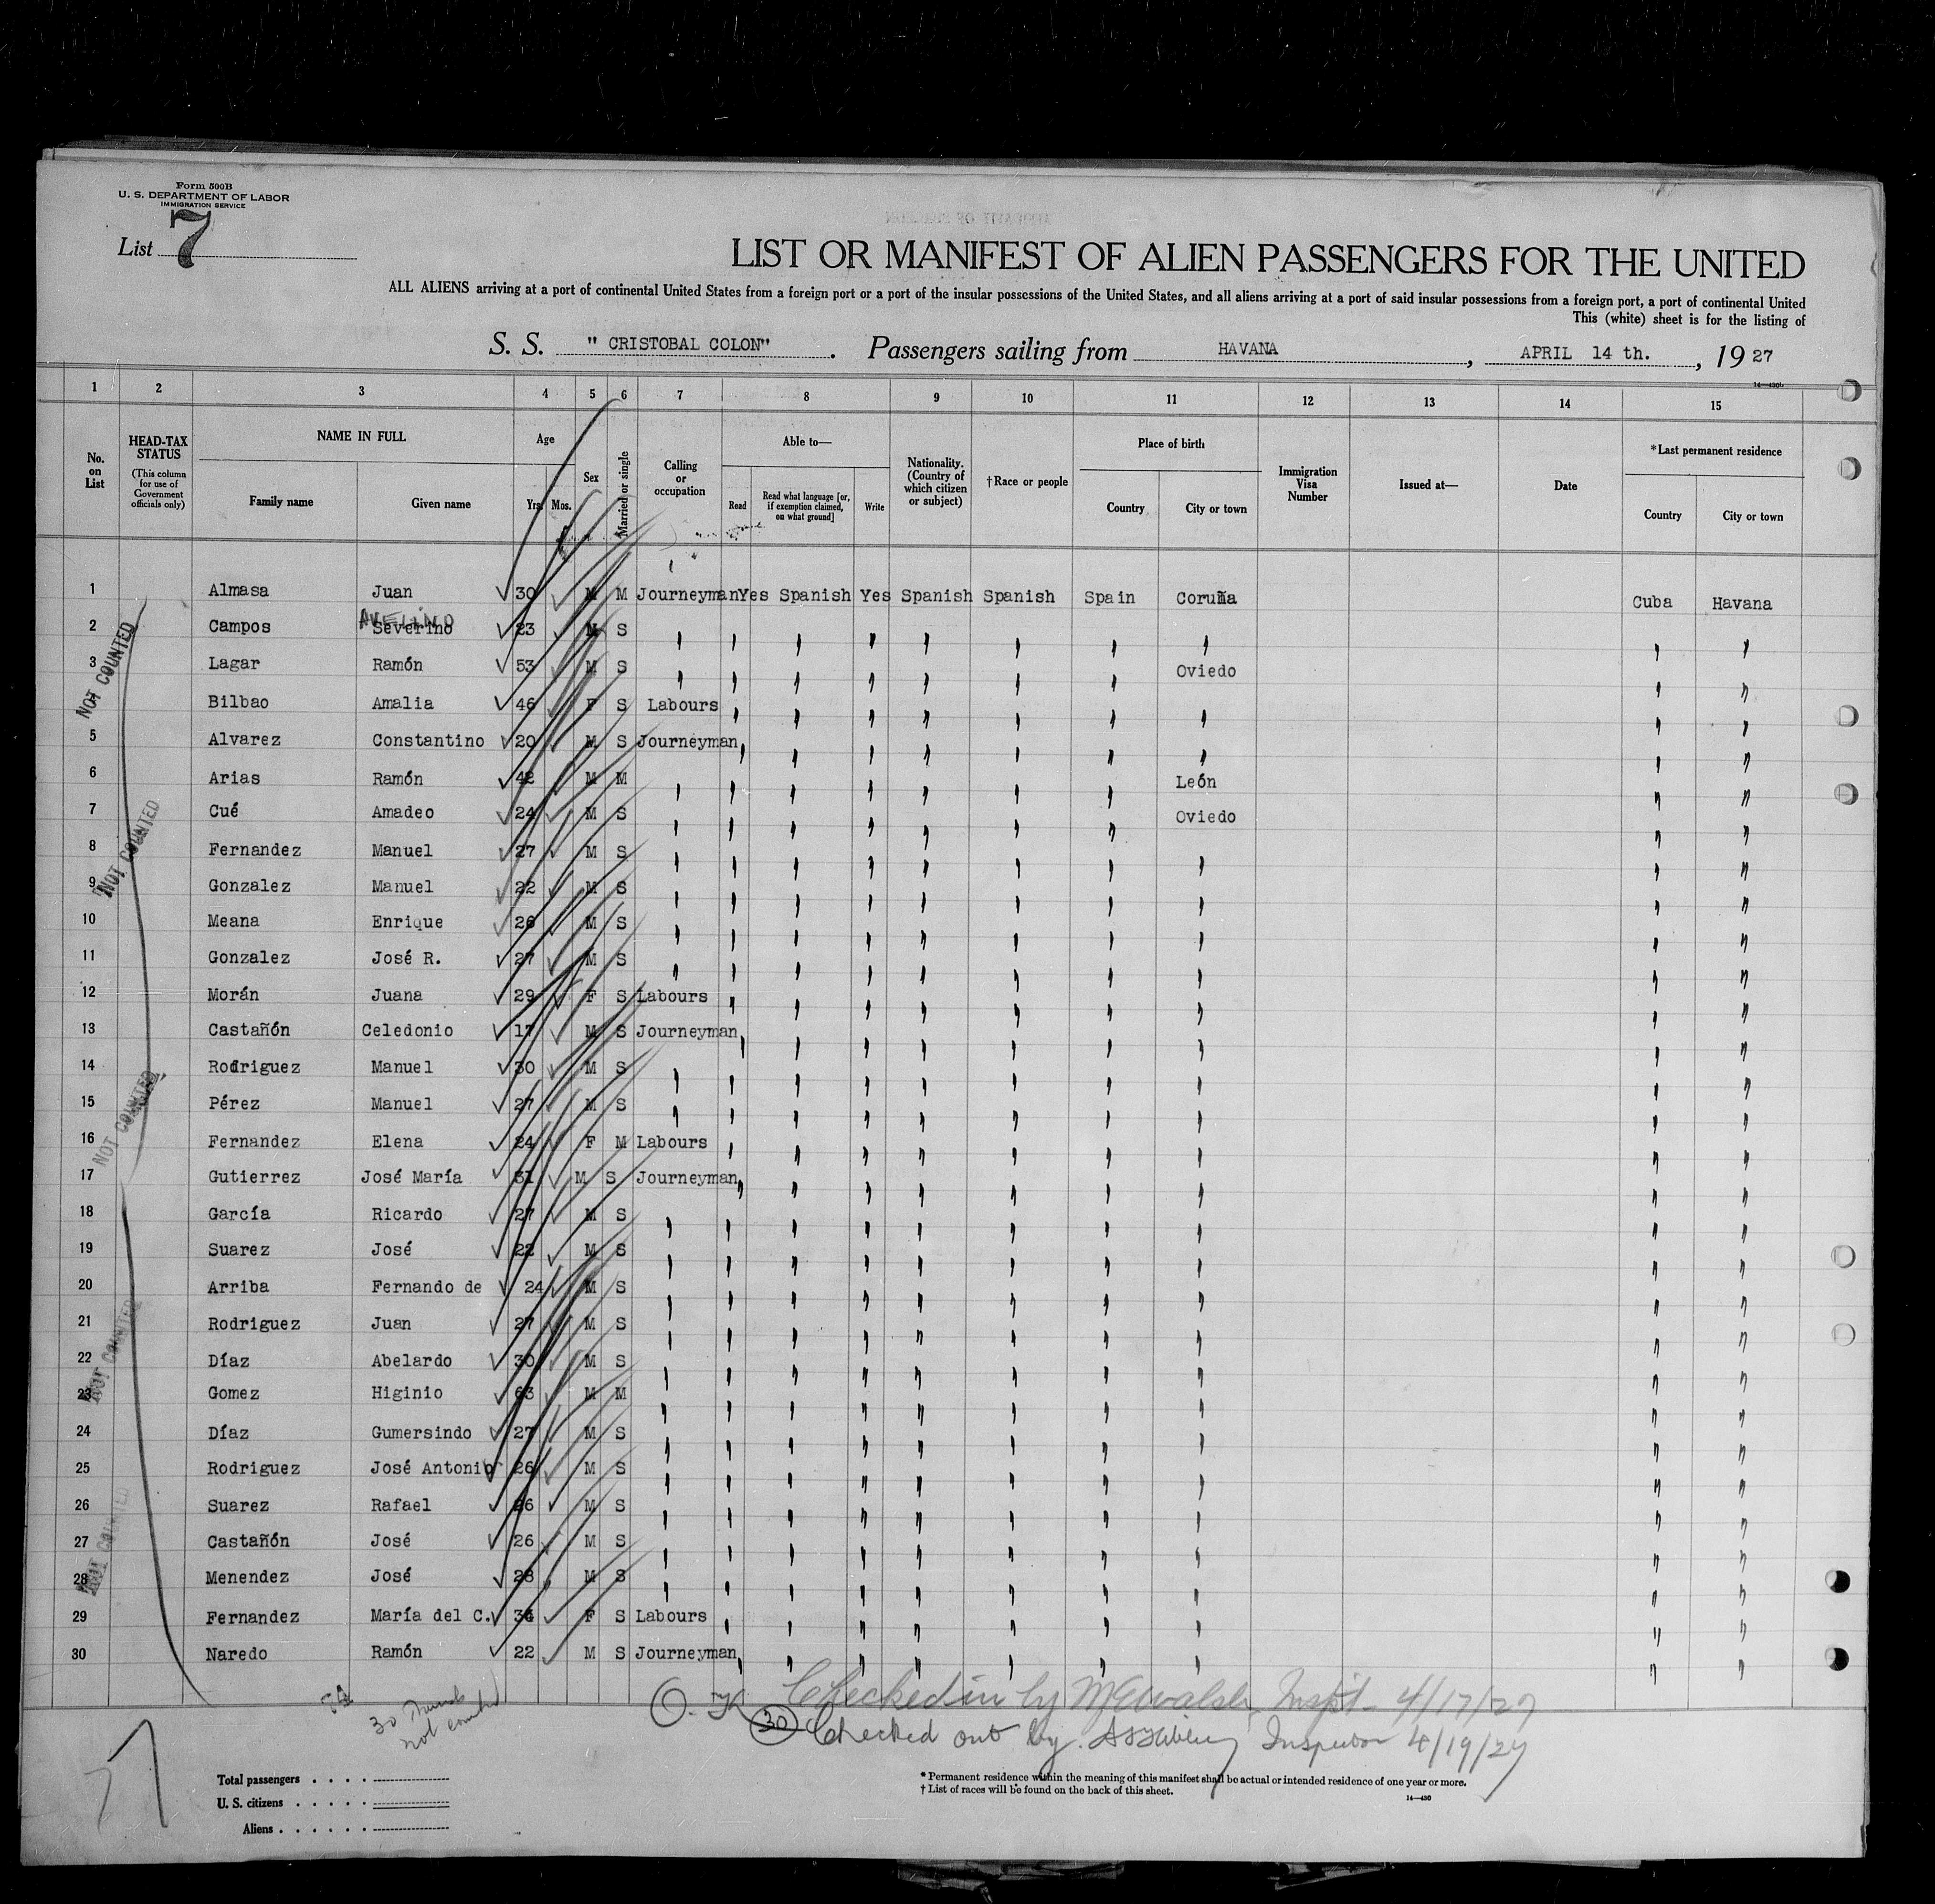 Form 500B
U. S. DEPARTMENT OF LABOR
IMMIGRATION SERVICE
List 7
LIST OR MANIFEST OF ALIEN PASSENGERS FOR THE UNITED
ALL ALIENS arriving at a port of continental United States from a foreign port or a port of the insular possessions of the United States, and all aliens arriving at a port of said insular possessions from a foreign port, a port of continental United
This (white) sheet is for the listing of
S. S. " CRISTOBAL COLON". Passengers sailing from HAVANA, APRIL 14 th., 19 27
1 2 3 4 5 6 7 8 9 10 11 12 13 14 15
No. on List
HEAD-TAX STATUS (This column for use of Government officials only)
NAME IN FULL
Family name Given name
Age
Yrs. Mos.
Sex
Married or single
Calling or occupation
Able to—
Read
Read what language [or, if exemption claimed, on what ground]
Write
Nationality. (Country of which citizen or subject)
†Race or people
Place of birth
Country City or town
Immigration Visa Number
Issued at—
Date
*Last permanent residence
Country City or town
1 Almasa Juan 30 M M Journeyman Yes Spanish Yes Spanish Spanish Spain Coruña Cuba Havana
AVELINO
2 Campos Severino 23 M S " " " " " " " " " "
3 Lagar Ramón 53 M S " " " " " " " Oviedo " "
Bilbao Amalia 46 F S Labours " " " " " " " " "
5 Alvarez Constantino 20 M S Journeyman " " " " " " " " "
6 Arias Ramón 42 M M " " " " " " " León " "
7 Cué Amadeo 24 M S " " " " " " " Oviedo " "
8 Fernandez Manuel 27 M S " " " " " " " " " "
9 Gonzalez Manuel 22 M S " " " " " " " " " "
10 Meana Enrique 26 M S " " " " " " " " " "
11 Gonzalez José R. 27 M S " " " " " " " " " "
12 Morán Juana 29 F S Labours " " " " " " " " "
13 Castañón Celedonio 17 M S Journeyman " " " " " " " " "
14 Rodriguez Manuel 30 M S " " " " " " " " " "
15 Pérez Manuel 27 M S " " " " " " " " " "
16 Fernandez Elena 24 F M Labours " " " " " " " " "
17 Gutierrez José María 31 M S Journeyman " " " " " " " " "
18 García Ricardo 27 M S " " " " " " " " " "
19 Suarez José 22 M S " " " " " " " " " "
20 Arriba Fernando de 24 M S " " " " " " " " " "
21 Rodriguez Juan 27 M S " " " " " " " " " "
22 Díaz Abelardo 30 M S " " " " " " " " " "
23 Gomez Higinio 63 M M " " " " " " " " " "
24 Díaz Gumersindo 27 M S " " " " " " " " " "
25 Rodriguez José Antonio 26 M S " " " " " " " " " "
26 Suarez Rafael 26 M S " " " " " " " " " "
27 Castañón José 26 M S " " " " " " " " " "
28 Menendez José 28 M S " " " " " " " " " "
29 Fernandez María del C. 34 F S Labours " " " " " " " " "
30 Naredo Ramón 22 M S Journeyman " " " " " " " " "
NOT COUNTED
NOT COUNTED
NOT COUNTED
NOT COUNTED
NOT COUNTED
30 not counted
O. K. Checked in by McWalsh, Inspt. 4/17/27
30 Checked out by Inspector 4/19/27
Total passengers
U. S. citizens
Aliens
* Permanent residence within the meaning of this manifest shall be actual or intended residence of one year or more.
† List of races will be found on the back of this sheet.
14—430